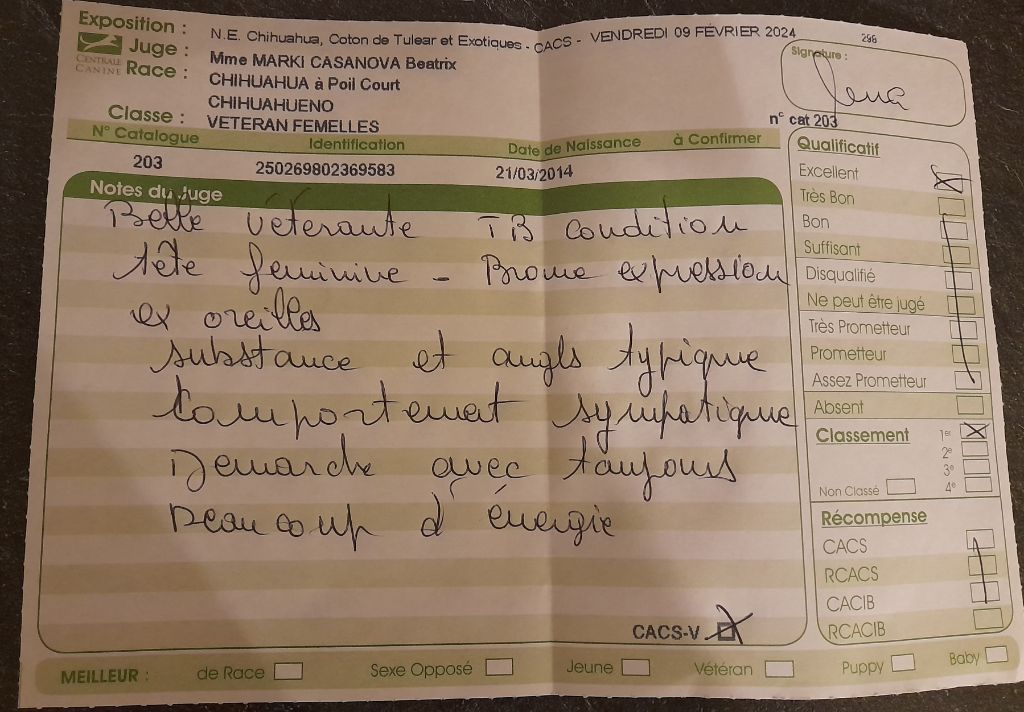 Exposition : N.E. Chihuahua, Coton de Tulear et Exotiques - CACS - VENDREDI 09 FÉVRIER 2024
296
Juge : Mme MARKI CASANOVA Beatrix
CENTRALE CANINE
Race : CHIHUAHUA à Poil Court
CHIHUAHUENO
Classe : VETERAN FEMELLES
Signature :
n° cat 203
N° Catalogue Identification Date de Naissance à Confirmer
203 250269802369583 21/03/2014
Notes du Juge
Belle véterante TB condition
tête feminine - Bonne expression
ex oreilles
substance et angls typique
Comportement sympatique
Demarche avec toujours
Beaucoup d'énergie
CACS-V
Qualificatif
Excellent
Très Bon
Bon
Suffisant
Disqualifié
Ne peut être jugé
Très Prometteur
Prometteur
Assez Prometteur
Absent
Classement 1er
2e
3e
Non Classé 4e
Récompense
CACS
RCACS
CACIB
RCACIB
MEILLEUR : de Race Sexe Opposé Jeune Vétéran Puppy Baby